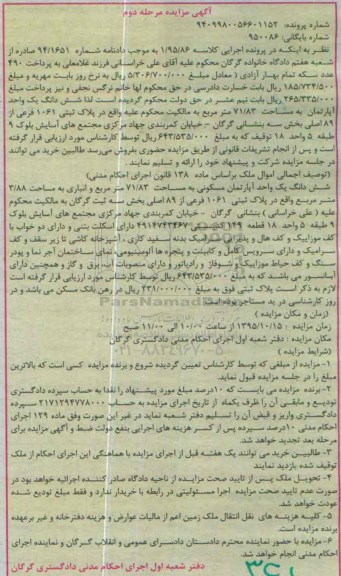 آگهی مزایده مرحله دوم
شماره پرونده: ۹۴۰۹۹۸۰۰۵۶۶۰۱۱۵۳
شماره بایگانی: ۹۵۰۰۸۶
نظر به اینکه در پرونده اجرایی کلاسه ۱/۹۵/۸۶ به موجب دادنامه شماره ۹۴/۱۶۵۱ صادره از
شعبه هفتم دادگاه خانواده گرگان محکوم علیه آقای علی خراسانی فرزند غلامعلی به پرداخت ۴۹۰
عدد سکه تمام بهار آزادی ( معادل مبلغ ۵/۳۰۶/۷۰۰/۰۰۰ ریال به نرخ روز بابت مهریه و مبلغ
۱۸۵/۷۳۴/۵۰۰ ریال بابت خسارت دادرسی در حق محکوم لها خانم نرگس نجفی و نیز پرداخت مبلغ
۲۶۵/۳۳۵/۰۰۰ ریال بابت نیم عشر در حق دولت محکوم گردیده است لذا شش دانگ یک واحد
آپارتمان به مساحت ۷۱/۸۳ متر مربع به مالکیت محکوم علیه واقع در پلاک ثبتی ۱۰۶۱ فرعی از
۸۹ اصلی بخش سه بنشانی گرگان – خیابان کمربندی جهاد مرکزی مجتمع های آسایش بلوک ۹
طبقه ۵ واحد ۱۸ توقیف که به مبلغ ۶۴۳/۵۳۵/۰۰۰ ریال توسط کارشناس مورد ارزیابی قرار گرفته
است و پس از انجام تشریفات قانونی از طریق مزایده حضوری بفروش می‌رسد طالبین خرید می توانند
در جلسه مزایده شرکت و پیشنهاد خود را ارائه و تسلیم نمایند .
(توصیف اجمالی اموال ملک براساس ماده ۱۳۸ قانون اجرای احکام مدنی)
شش دانگ یک واحد آپارتمان مسکونی به مساحت ۷۱/۸۳ متر مربع و انباری به مساحت ۳/۸۸
متر مربع واقع در پلاک ثبتی ۱۰۶۱ فرعی از ۸۹ اصلی بخش سه ثبت گرگان به مالکیت محکوم
علیه ( علی خراسانی ) بنشانی گرگان – خیابان کمربندی جهاد مرکزی مجتمع های آسایش بلوک
۹ طبقه ۵ واحد ۱۸ قطعه ۱۴۹ کدپستی ۴۹۱۴۷۴۳۴۶۷ دارای اسکلت بتنی و دارای دو خواب با
کف موزاییک و کف هال و پذیرایی سرامیک بدنه سفید کاری ، آشپزخانه کاشی تا زیر سقف و کف
سرامیک و دارای سرویس کامل و کابینت و پنجره ها آلومینیومی، نمای ساختمان آجر نما و پودر
سنگ و کف حیاط موزاییک و شوفاژ و رادیاتور و دارای منصوبات آب، برق و گاز و همچنین دارای
آسانسور می باشد که به مبلغ ۶۴۳/۵۳۵/۰۰۰ ریال توسط کارشناس مورد ارزیابی قرار گرفته است
لازم به ذکر است پلاک ثبتی فوق به مبلغ ۴۳۱/۰۰۰/۰۰۰ ریال در رهن بانک مسکن می باشد و در
روز کارشناسی در ید مستاجر بوده است
(زمان و مکان مزایده )
زمان مزایده : ۱۳۹۵/۱۰/۱۵ از ساعت ۱۰/۰۰ الی ۱۱/۰۰ صبح
مکان مزایده : دفتر شعبه اول اجرای احکام مدنی دادگستری گرگان
(شرایط مزایده )
۱- مزایده از مبلغی که توسط کارشناس تعیین گردیده شروع و برنده مزایده کسی است که بالاترین
مبلغ را در جلسه مزایده قبول نماید.
۲-برنده مزایده می بایست که ۱۰درصد مبلغ مورد پیشنهاد را نقدا به حساب سپرده دادگستری
تودیع و مابقی آن را ظرف یکماه از تاریخ اجرای مزایده به حساب ۲۱۷۱۲۹۴۷۷۸۰۰۰ سپرده
دادگستری واریز و قبض آن را تسلیم دفتر شعبه نماید در غیر این صورت وفق ماده ۱۲۹ اجرای
احکام مدنی ۱۰درصد سپرده پس از کسر هزینه های اجرایی بنفع دولت ضبط و آگهی مزایده برای
مرحله بعد تجدید خواهد شد.
۳- طالبین خرید می توانند یک هفته قبل از اجرای مزایده با هماهنگی این اجرای احکام از ملک
توقیف شده بازدید نمایند
۴- تحویل ملک پس از تایید صحت مزایده از ناحیه دادگاه صادر کننده اجرائیه خواهد بود در
صورت عدم تایید صحت مزایده اجرا مسئولیتی در رابطه با خریدار ندارد و فقط مبلغ تودیع شده
عودت خواهد شد.
۵- کلیه هزینه های نقل انتقال ملک زمین اعم از مالیات عوارض و هزینه دفترخانه و غیر برعهده
برنده مزایده است.
۶- مزایده با حضور نماینده محترم دادستان دادسرای عمومی و انقلاب گرگان و نماینده اجرای
احکام مدنی انجام خواهد شد.
دفتر شعبه اول اجرای احکام مدنی دادگستری گرگان
ParsNamad
۰۲۱-۸۸۳۴۹۶۷۰-۵